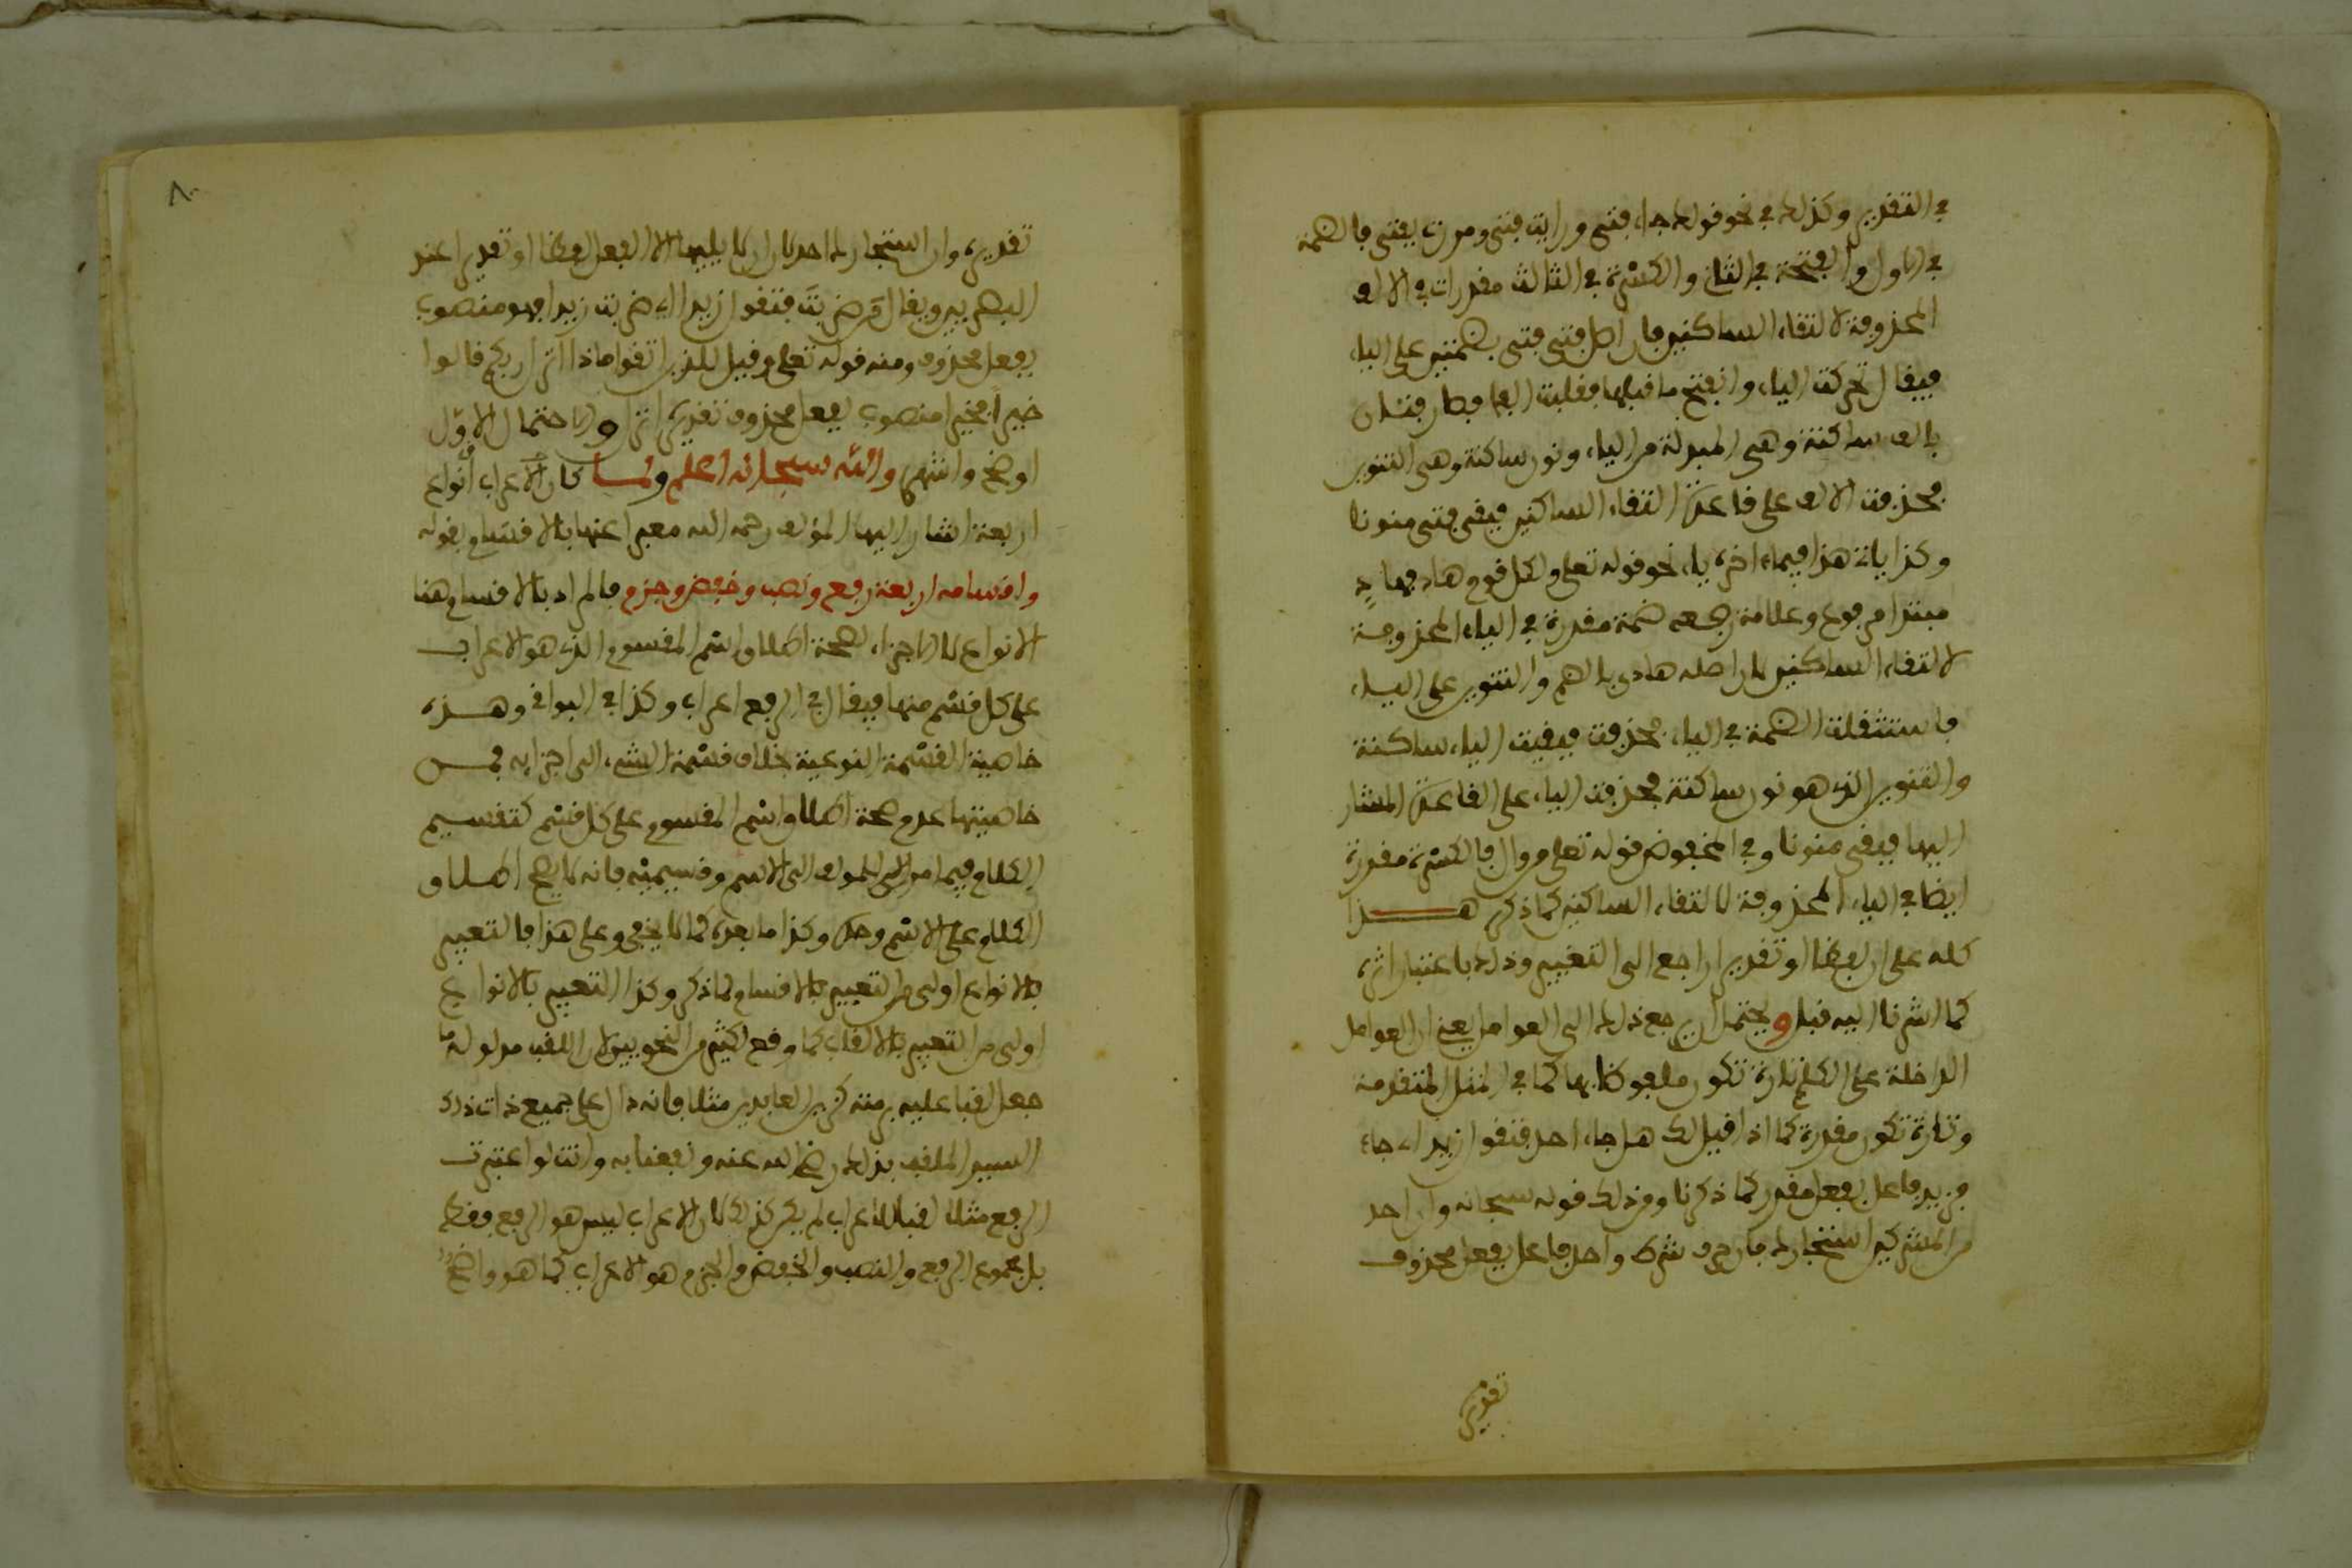 في التقدير وكذلك في نحو قولك جاء فتى ورايت فتى ومررت بفتى فالضمة
في الاول والفتحة في الثاني والكسرة في الثالث مقدرات في الالف
المحذوفة لالتقاء الساكنين فان اصل فتى فتي بضمتين على الياء
فيقال تحركت الياء وانفتح ما قبلها فقلبت الفا فصار فتان
بالف ساكنة وهي المبدلة من الياء ونون ساكنة وهي التنوين
فحذفت الالف على قاعدة التقاء الساكنين فبقى فتى منونا
وكذا ياتي هذا فيما اخره ياء نحو قوله تعلى ولكل قوم هاد فهادٍ
مبتدا مرفوع وعلامة رفعه ضمة مقدرة في الياء المحذوفة
لالتقاء الساكنين لان اصله هادي بالضم والتنوين على الياء
فاستثقلت الضمة في الياء فحذفت فبقيت الياء ساكنة
والتنوين الذي هو نون ساكنة فحذفت الياء على القاعدة المشار
اليها فبقي منونا وفي المخفوض قوله تعلى من وال فالكسرة مقدرة
ايضا في الياء المحذوفة لالتقاء الساكنين كما ذكر هـــذا
كله على ان لفظا او تقديرا راجع الى التغيير وذلك باعتبار اثره
كما اشرنا اليه قبل ويحتمل ان يرجع ذلك الى العوامل يعني ان العوامل
الداخلة على الكلم تارة تكون ملفوظا بها كما في المثل المتقدمة
وتارة تكون مقدرة كما اذا قيل لك هل جاء احد فتقول زيد اي جاء
فزيد فاعل بفعل مقدر كما ذكرنا ومن ذلك قوله سبحانه وان احد
من المشركين استجارك فان حرف شرط واحد فاعل بفعل محذوف
تقديره
٨٠
تقديره وان استجارك احد لان ان لا يليها الا الفعل لفظا او تقديرا عند
البصريين ويقال من ضربت فتقول زيدا اي ضربت زيدا فهو منصوب
بفعل محذوف ومنه قوله تعلى وقيل للذين اتقوا ماذا انزل ربكم قالوا
خيرا فخيرا منصوب بفعل محذوف تقديره انزل والاحتمال الاوّل
اوضح وانتهى والله سبحانه اعلم ولمـا كان الاعراب أنواع
اربعة اشار اليها المؤلف رحمه الله معبرا عنها بالاقسام بقوله
واقسامه اربعة رفع ونصب وخفض وجزم فالمراد بالاقسام هنا
الانواع لا الاجزاء لصحة اطلاق اسم المقسوم الذي هو الاعراب
على كل قسم منها فيقال في الرفع اعراب وكذا في البواقي وهـذه
خاصية القسمة النوعية بخلاف قسمة الشيء الى اجزايه فمـن
خاصيتها عدم صحة اطلاق اسم المقسوم على كل قسم كتقسيم
الكلام فيما مر للمؤلف الى الاسم وقسيميه فانه لا يصح اطـلاق
الكلام على الاسم وحده وكذا ما بعده كما لا يخفى وعلى هذا فالتعبير
بالانواع اولى من التعبير بالاقسام لما ذكر وكذا التعبير بالانواع
اولى من التعبير بالالقاب كما وقع لكثير من النحويين لان اللقب مدلوله ما
جعل لقبا عليه برمته كزين العابدين مثلا فانه دال على جميع ذات ذلك
السيد الملقب بذلك رضي الله عنه ونفعنا به وانت لو اعتبرت
الرفع مثلا لقبا للاعراب لم يكن كذلك لان الاعراب ليس هو الرفع وفقط
بل مجموع الرفع والنصب والخفض والجزم هو الاعراب كما هو واضح